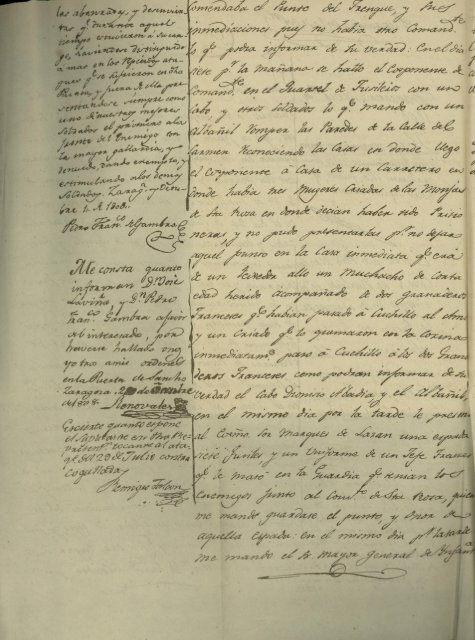 las abanzadas, y descuvier
tas qe. durante aquel
tiempo
haviendose distinguido
a mas en los Repetidos ata
ques qe. se ofrecieron en dha
Puerta, y fuera de ella pre
sentandose siempre como
uno de nuestros mejores
Soldados el primero a la
frente del Enemigo con
la mayor gallardia, y
denuedo, dando exemplo, y
estimulando a los demas
Soldados. Zaragª. y
bre 1. de 1808.
Pedro Franco. de Gambra
Me consta quanto
informan Dn. José
Laviña, y Dn. Pedro
Franco. Gambra a favor
del interesado, por
haverse hallado uno
y otro a mis ordenes
en la Puerta de Sancho
Zaragoza 2 de
de 1808.
Renovales
Es cierto quanto expone
el
tocante al ata
qe. del 29 de Julio contra
Cogullada
Enrique
comendaba el Punto del y tres
inmediaciones pues no havia otro Comandte.
lo qe. podra informar de su verdad: En el dia
siete pr. la mañana se hallo el Exponente de
Comandte. en el Quartel de Fusileros con un
Cabo, y otros soldados lo qe. mando con un
Albañil romper las Paredes de la Calle del
Carmen Reconociendo las Casas en donde llego
el Exponente a Casa de un Carretero en
donde havia tres Mugeres Criadas de las Monjas
de Sta. Rosa en donde decian haber sido Prisio
neras, y no pudo presentarlas pr. no dejar
aquel punto en la Casa inmediata qe. era
de un Texedor allo un Muchacho de corta
edad herido acompañado de dos Granaderos
Franceses qe. habian pasado a Cuchillo al amo
y un Criado qe. lo quemaron en la Cozina
inmediatamte. paso a Cuchillo a los dos Grana
deros Franceses como podran informar de su
verdad el Cabo Dionisio Abadia y el Albañil,
en el mismo dia por la tarde le presento
al Exmo. Sor. Marques de Lazan una espada
siete fusiles y un Uniforme de un Jefe Frances
qe. le mató en la Guardia qe. tenian los
Enemigos junto al Convto. de Sta. Rosa, quien
me mando guardase el punto, y
aquella espada: en el mismo dia pr. la tarde
me mando el Sr. Mayor General de Infantª